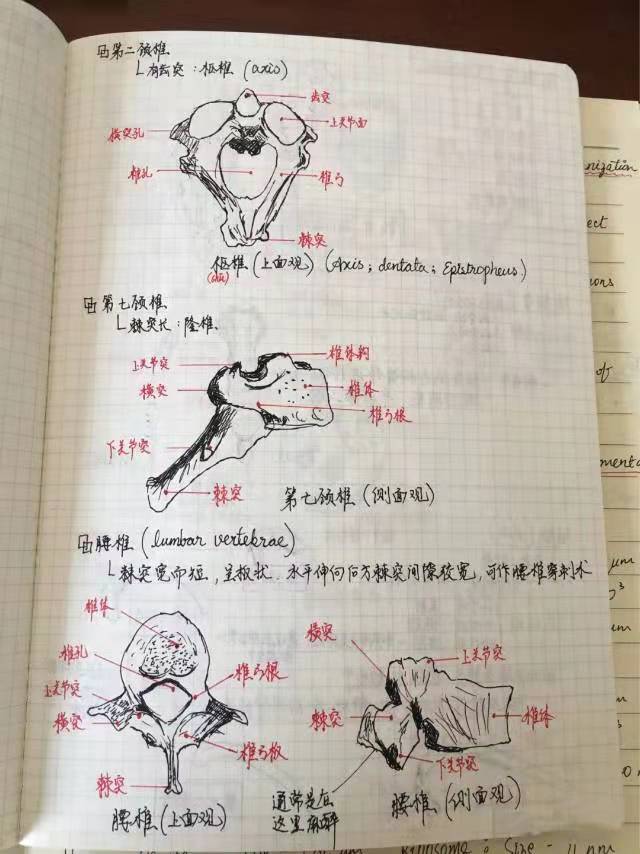 第二颈椎
有齿突：枢椎 (axis)
齿突
上关节面
横突孔
椎孔
椎弓
棘突
枢椎 (上面观) (Axis; dentata; Epistropheus)
第七颈椎
棘突长：隆椎
上关节突
椎体钩
横突
椎体
椎弓根
下关节突
棘突
第七颈椎 (侧面观)
腰椎 (lumbar vertebrae)
棘突宽而短，呈板状. 水平伸向后方棘突间隙较宽，可作腰椎穿刺术
椎体
椎孔
椎弓根
上关节突
横突
椎弓板
棘突
腰椎 (上面观)
横突
上关节突
棘突
椎体
下关节突
通常是在
这里麻醉
腰椎 (侧面观)
nization
ect
ions
of
menta
μm
μm